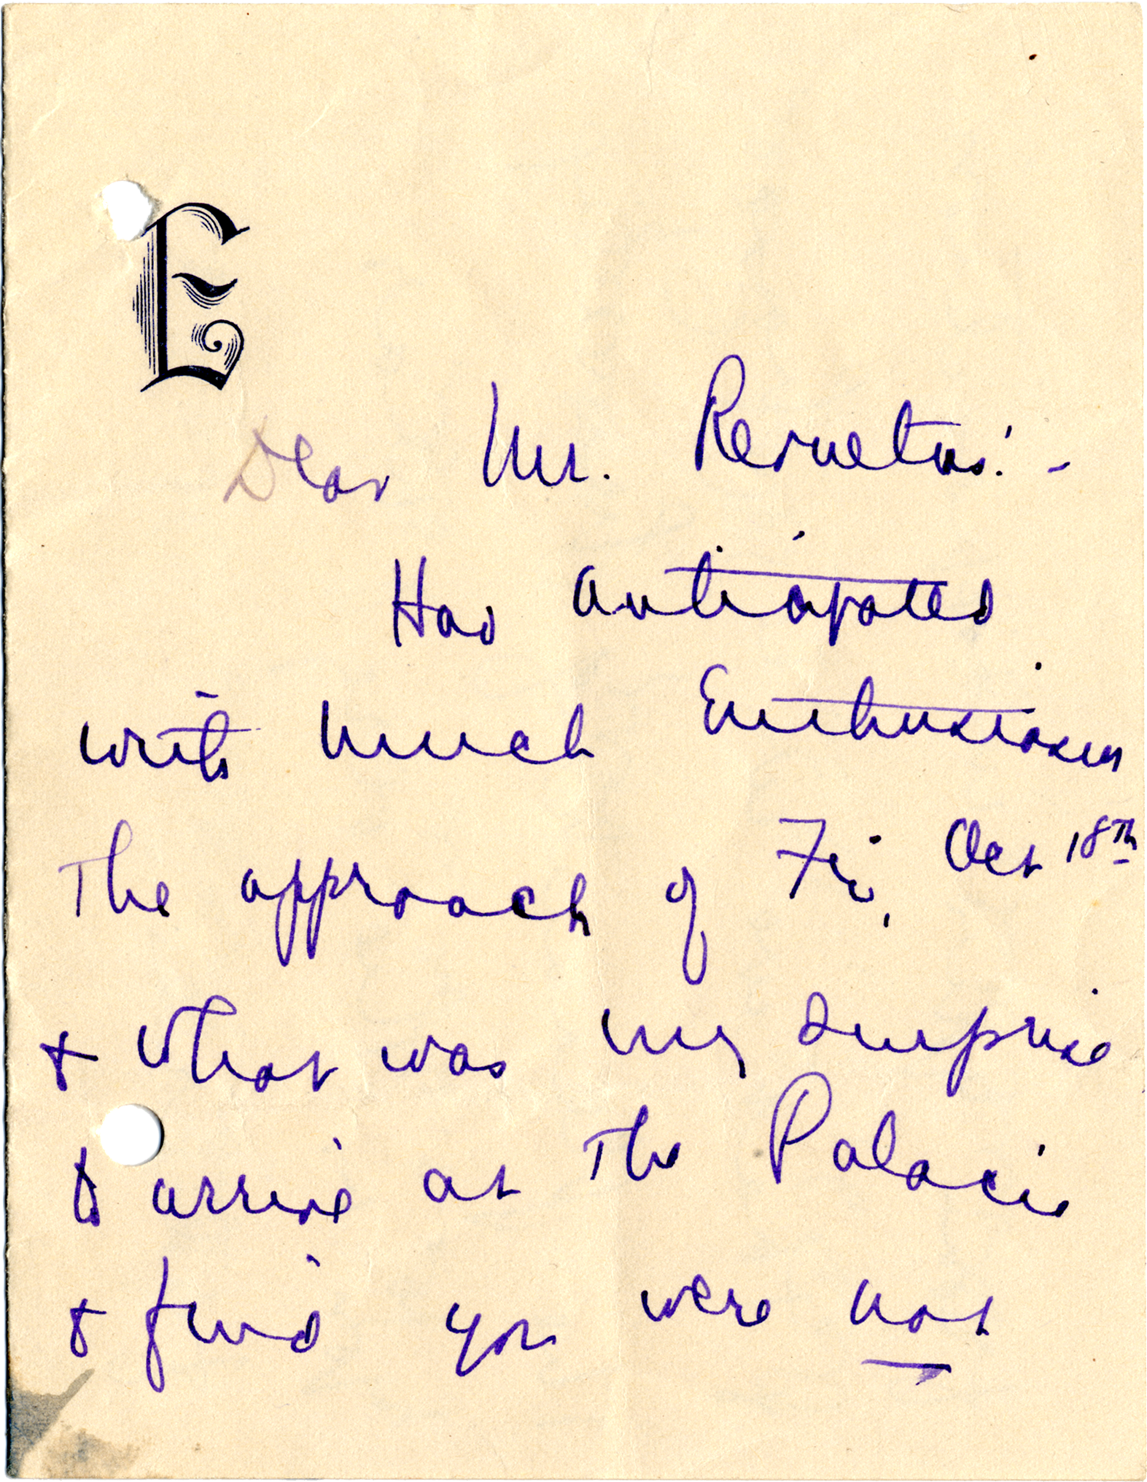 E
Dear Mr.
Had anticipated
with much Enthusiasm
The approach of Fri, Oct 18th
& what was my surprise
to arrive at The Palace
& find you were not